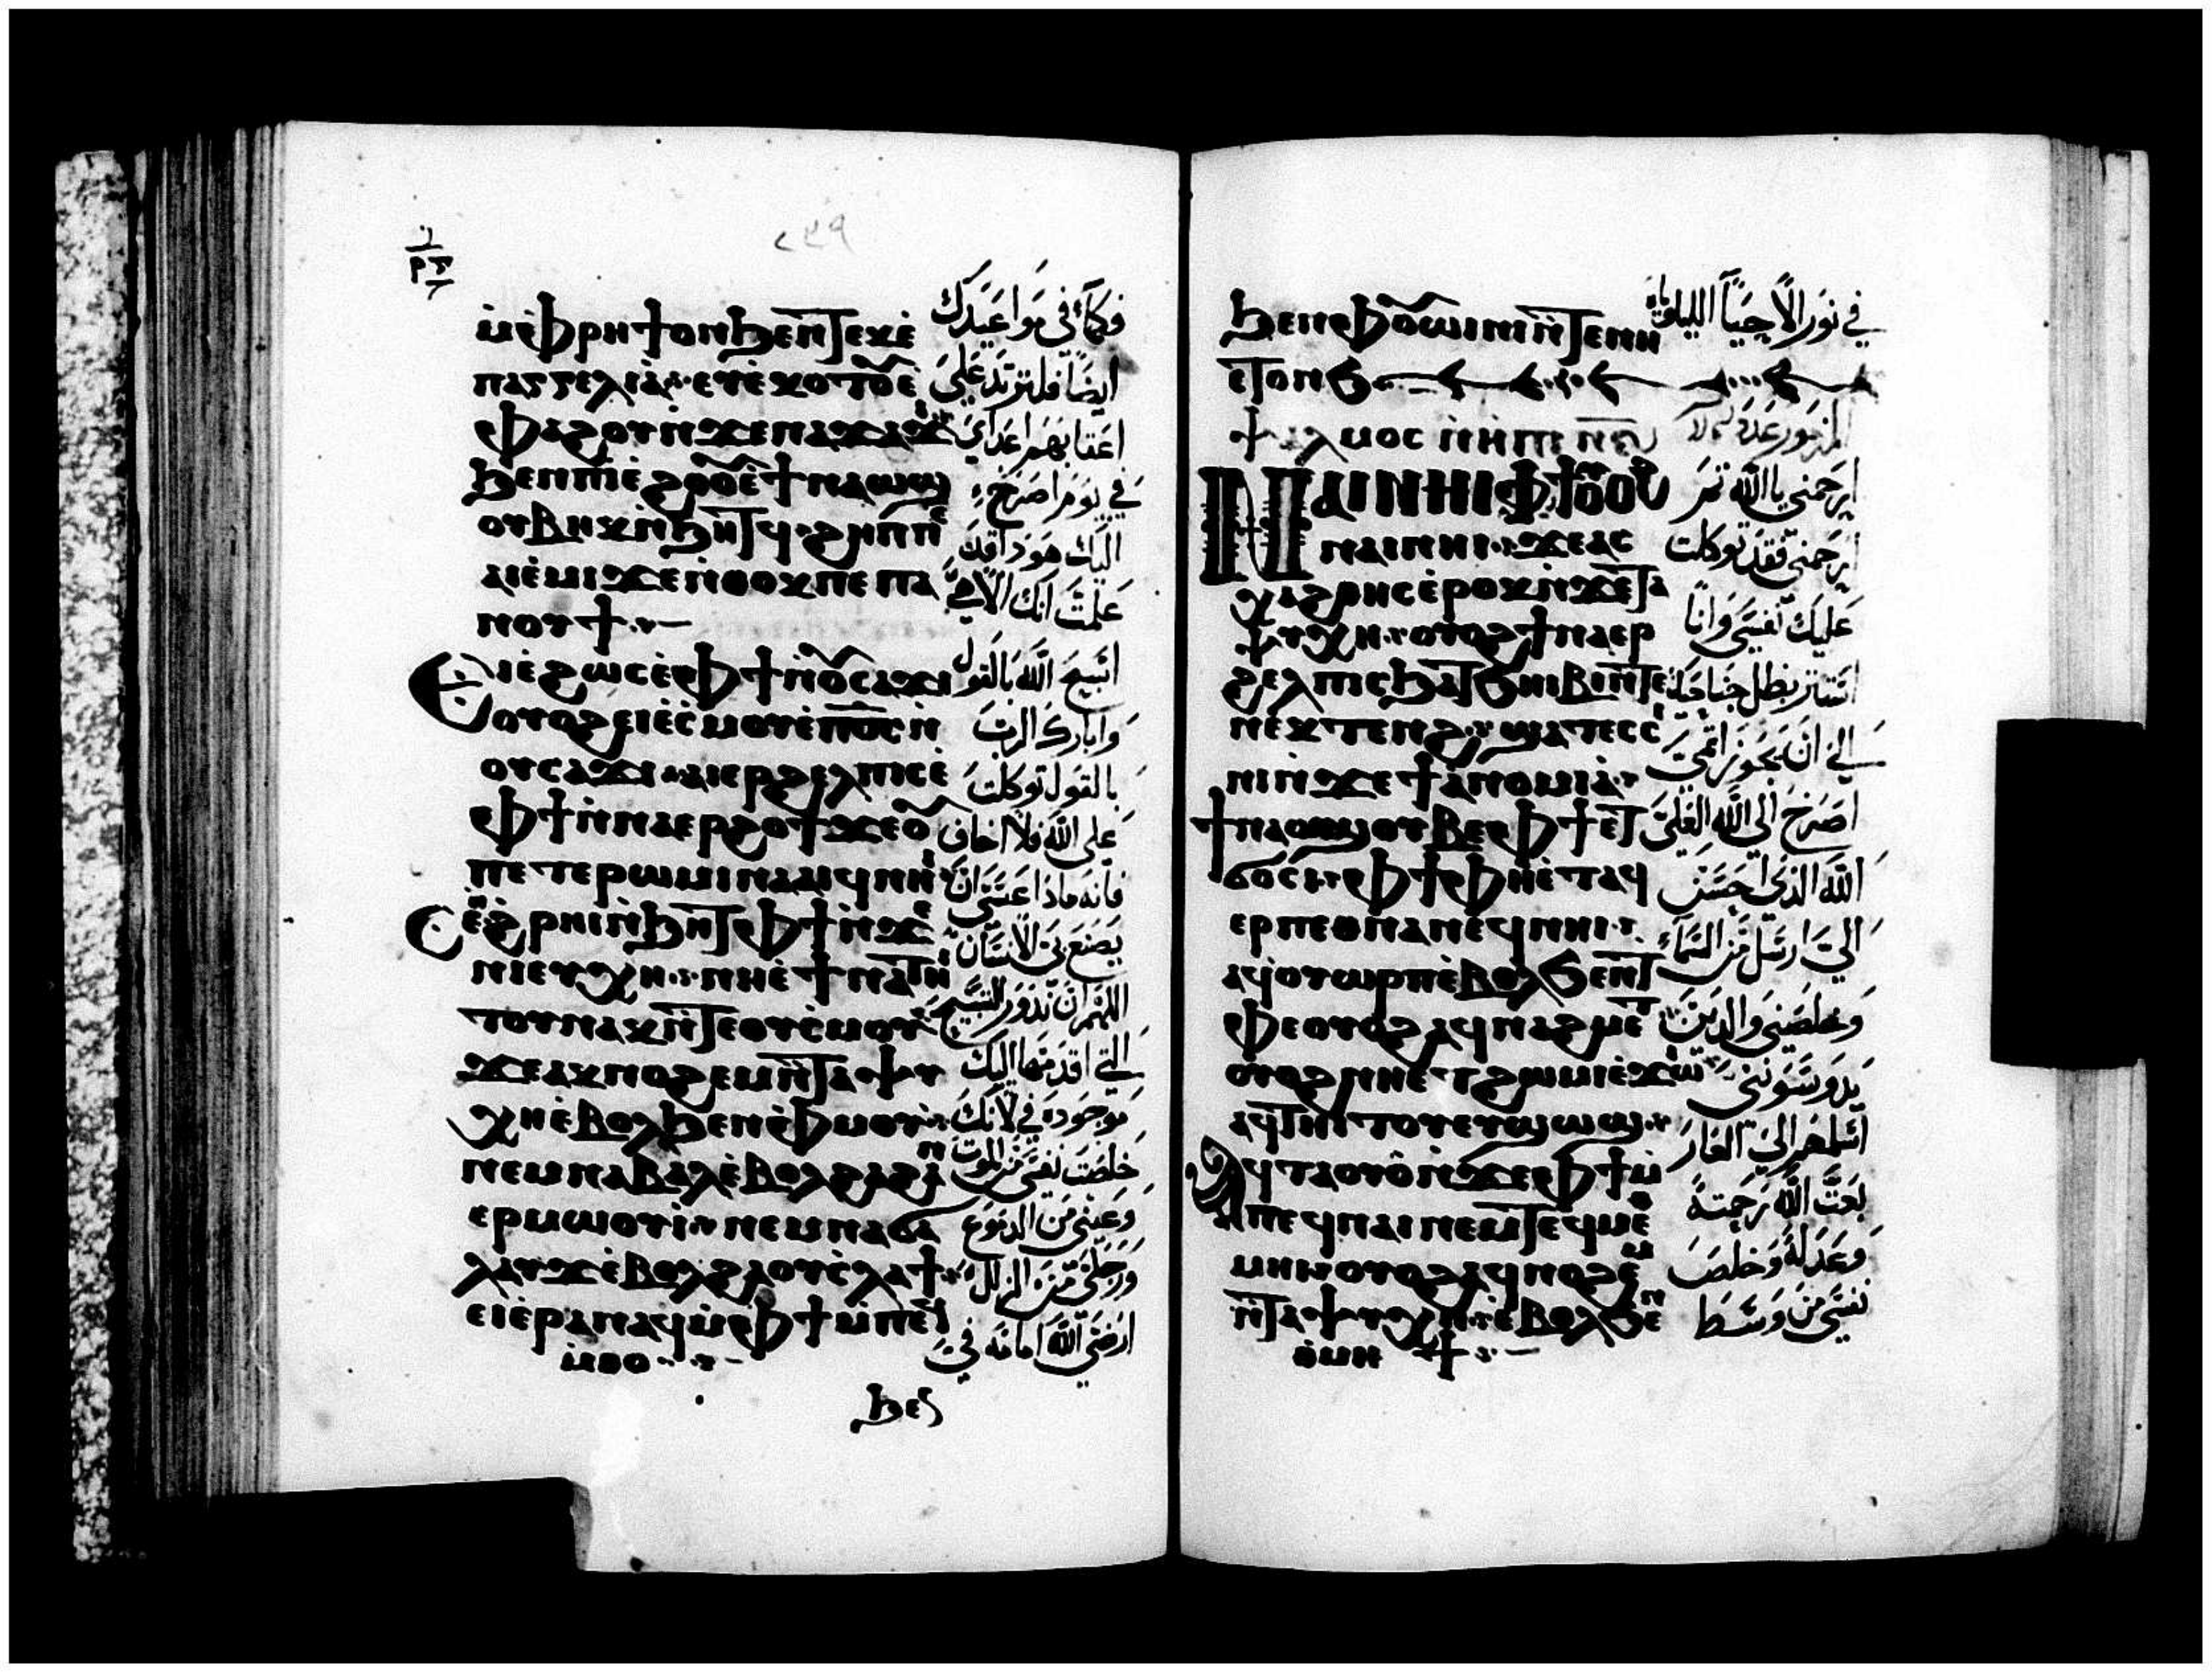 ⲙ̀ⲫⲣⲏϯ ⲟⲛ ϧⲉⲛ ⲧⲉⲕⲉ̀
ⲡⲁⲅⲅⲉⲗⲓⲁ̀ ⲉⲩⲉ̀ⲕⲟⲧⲟⲩ ⲉ̀
ⲫⲁϩⲟⲩ ⲛ̀ϫⲉ ⲛⲁϫⲁϫⲓ
ϧⲉⲛ ⲡⲓⲉ̀ϩⲟⲟⲩ ⲉ̀ϯⲛⲁⲱϣ
ⲟⲩⲃⲏⲕ ⲛ̀ϧⲏⲧϥ ϩⲏⲡⲡⲉ
ⲁⲓⲉ̀ⲙⲓ ϫⲉ ⲛ̀ⲑⲟⲕ ⲡⲉ ⲡⲁ
ⲛⲟⲩϯ
Ⲉⲓⲉ̀ϩⲱⲥ ⲉ̀ⲫϯ ⲛ̀ⲟⲩⲥⲁϫⲓ
ⲟⲩⲟϩ ⲉⲓⲉ̀ⲥ̀ⲙⲟⲩ ⲉ̀ⲡⲟ̅ⲥ̅ ⲛ̀
ⲟⲩⲥⲁϫⲓ ⲁⲓⲉⲣϩⲉⲗⲡⲓⲥ ⲉ̀
ⲫϯ ⲛ̀ⲛⲁⲉⲣϩⲟϯ ϫⲉ ⲟⲩ
ⲡⲉⲧⲉ ⲣⲱⲙⲓ ⲛⲁⲁⲓϥ ⲛⲏⲓ
Ⲥⲉϩ̀ⲣⲏⲓ ⲛ̀ϧⲏⲧ ⲫϯ ⲛ̀ϫⲉ
ⲛⲓⲉⲩⲭⲏ ⲛⲏ ⲉ̀ϯⲛⲁⲧⲏⲓ
ⲧⲟⲩ ⲛⲁⲕ ⲛ̀ⲧⲉ ⲟⲩⲥ̀ⲙⲟⲩ
ϫⲉ ⲁⲕⲛⲟϩⲉⲙ ⲛ̀ⲧⲁⲯⲩ
ⲭⲏ ⲉ̀ⲃⲟⲗ ϧⲉⲛ ⲫ̀ⲙⲟⲩ
ⲛⲉⲙ ⲛⲁⲃⲁⲗ ⲉ̀ⲃⲟⲗ ϩⲁ ϩⲁⲛ
ⲉⲣⲙⲱⲟⲩⲓ̀ ⲛⲉⲙ ⲛⲁϭⲁ
ⲗⲁⲩϫ ⲉ̀ⲃⲟⲗ ϩⲁ ⲟⲩⲥ̀ⲗⲁϯ
ⲉⲓⲉ̀ⲣⲁⲛⲁϥ ⲙ̀ⲫϯ ⲙ̀ⲡⲉϥ
ⲙ̀ⲑⲟ
ϧⲉⲛ
ايضا فلترتد علي
اعقابهم اعداي
في يوم اصرخ
اليك هوذا قد
علمت انك الاهي
اسبح الله بالقول
وابارك الرب
بالقول توكلت
علي الله فلا اخاف
فانه ماذا عسي ان
يصنع بي الانسان
اللهم ان نذور التسبيح
التي اقدمها اليك
موجوده في لانك
خلصت نفسي من الموت
وعيني من الدموع
ورجلي من الزلل
ارضي الله امامه في
ϧⲉⲛ ⲫ̀ⲟⲩⲱⲓⲛⲓ ⲛ̀ⲧⲉ ⲛⲏ
ⲉⲧⲟⲛϧ
ⲯⲁⲗⲙⲟⲥ
Ⲛⲁⲓ ⲛⲏⲓ ⲫϯ ⲟⲩⲟϩ
ⲛⲁⲓ ⲛⲏⲓ ϫⲉ ⲁⲥ
ⲭⲁϩⲑⲏⲥ ⲉ̀ⲣⲟⲕ ⲛ̀ϫⲉ ⲧⲁ
ⲯⲩⲭⲏ ⲟⲩⲟϩ ϯⲛⲁⲉⲣ
ϩⲉⲗⲡⲓⲥ ϧⲁ ⲧϧⲏⲓⲃⲓ ⲛ̀ⲧⲉ
ⲛⲉⲕⲧⲉⲛϩ ϣⲁⲧⲉⲥⲥⲓ
ⲛⲓ ⲛ̀ϫⲉ ϯⲁ̀ⲛⲟⲙⲓⲁ̀
ϯⲛⲁⲱϣ ⲟⲩⲃⲉ ⲫϯ ⲉⲧ
ϭⲟⲥⲓ ⲫϯ ⲫⲏ ⲉ̀ⲧⲁϥ
ⲉⲣⲡⲉⲑⲛⲁⲛⲉϥ ⲛⲏⲓ
ⲁϥⲟⲩⲱⲣⲡ ⲉ̀ⲃⲟⲗ ϧⲉⲛ ⲧ
ⲫⲉ ⲟⲩⲟϩ ⲁϥⲛⲁϩⲙⲉⲧ
ⲟⲩⲟϩ ⲛⲏ ⲉⲧϩⲱⲙⲓ ⲉ̀ϫⲱⲓ
ⲁϥⲧⲏⲓⲧⲟⲩ ⲉⲩϣⲱϣ
Ⲁϥⲧⲁⲟⲩⲟ̀ ⲛ̀ϫⲉ ⲫϯ ⲙ̀
ⲡⲉϥⲛⲁⲓ ⲛⲉⲙ ⲧⲉϥⲙⲉⲑ
ⲙⲏⲓ ⲟⲩⲟϩ ⲁϥⲛⲟϩⲉⲙ
ⲛ̀ⲧⲁⲯⲩⲭⲏ ⲉ̀ⲃⲟⲗ ϧⲉⲛ
ⲑ̀ⲙⲏϯ
في نور الاحيا
ارحمني يا الله ثم
ارحمني فقد توكلت
عليك نفسي وانا
استتر بظل جناحك
الي ان يجوز
اصرخ الي الله العلي
الله الذي احسن
الي ارسل من السماء
وخلصني والذين
يدوسونني
اسلمهم الي العار
بعث الله رحمته
وعدله وخلص
نفسي من وسط